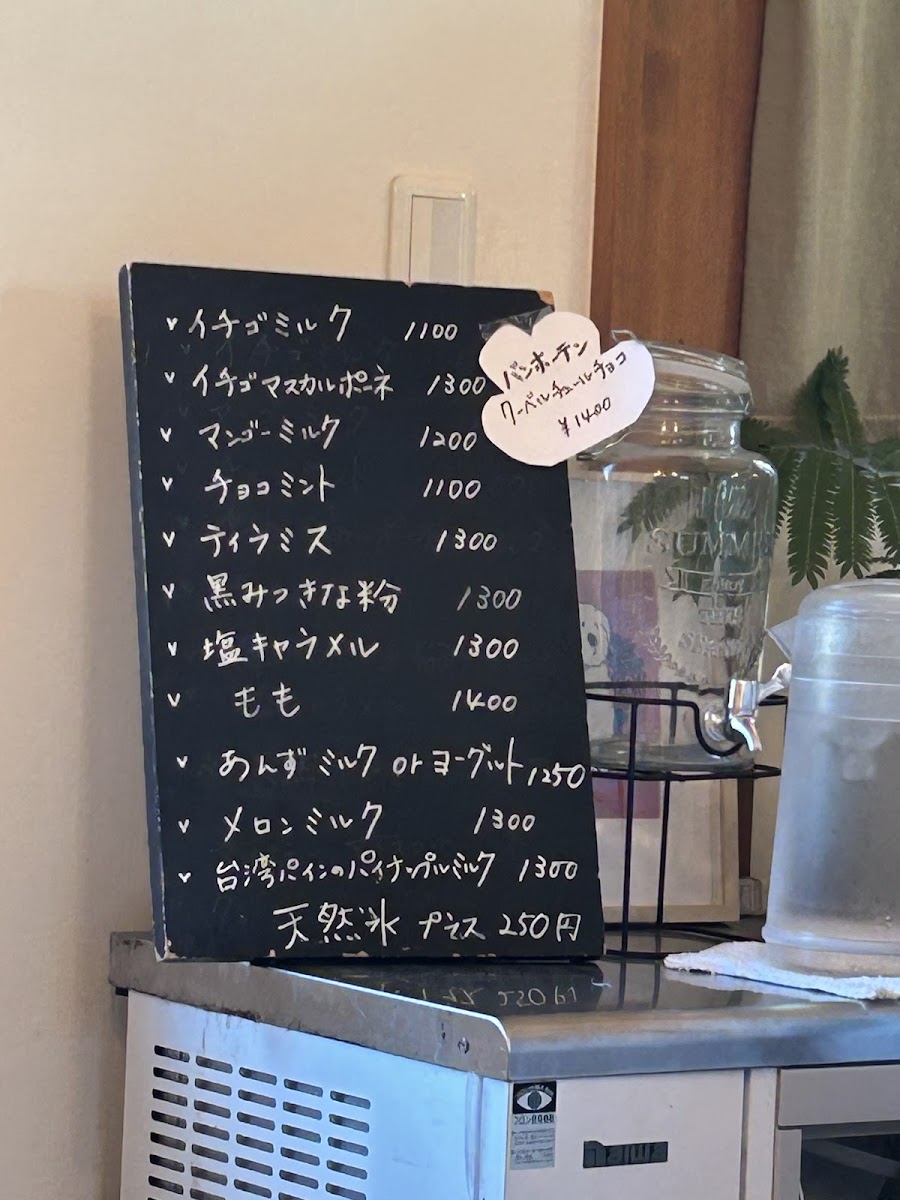 v イチゴミルク 1100
v イチゴマスカルポーネ 1300
v マンゴーミルク 1200
v チョコミント 1100
v ティラミス 1300
v 黒みつきな粉 1300
v 塩キャラメル 1300
v もも 1400
v あんずミルク or ヨーグルト 1250
v メロンミルク 1300
v 台湾パインのパイナップルミルク 1300
天然氷 プラス 250円
バンホーテン
クーベルチュールチョコ
¥1400
SUMM